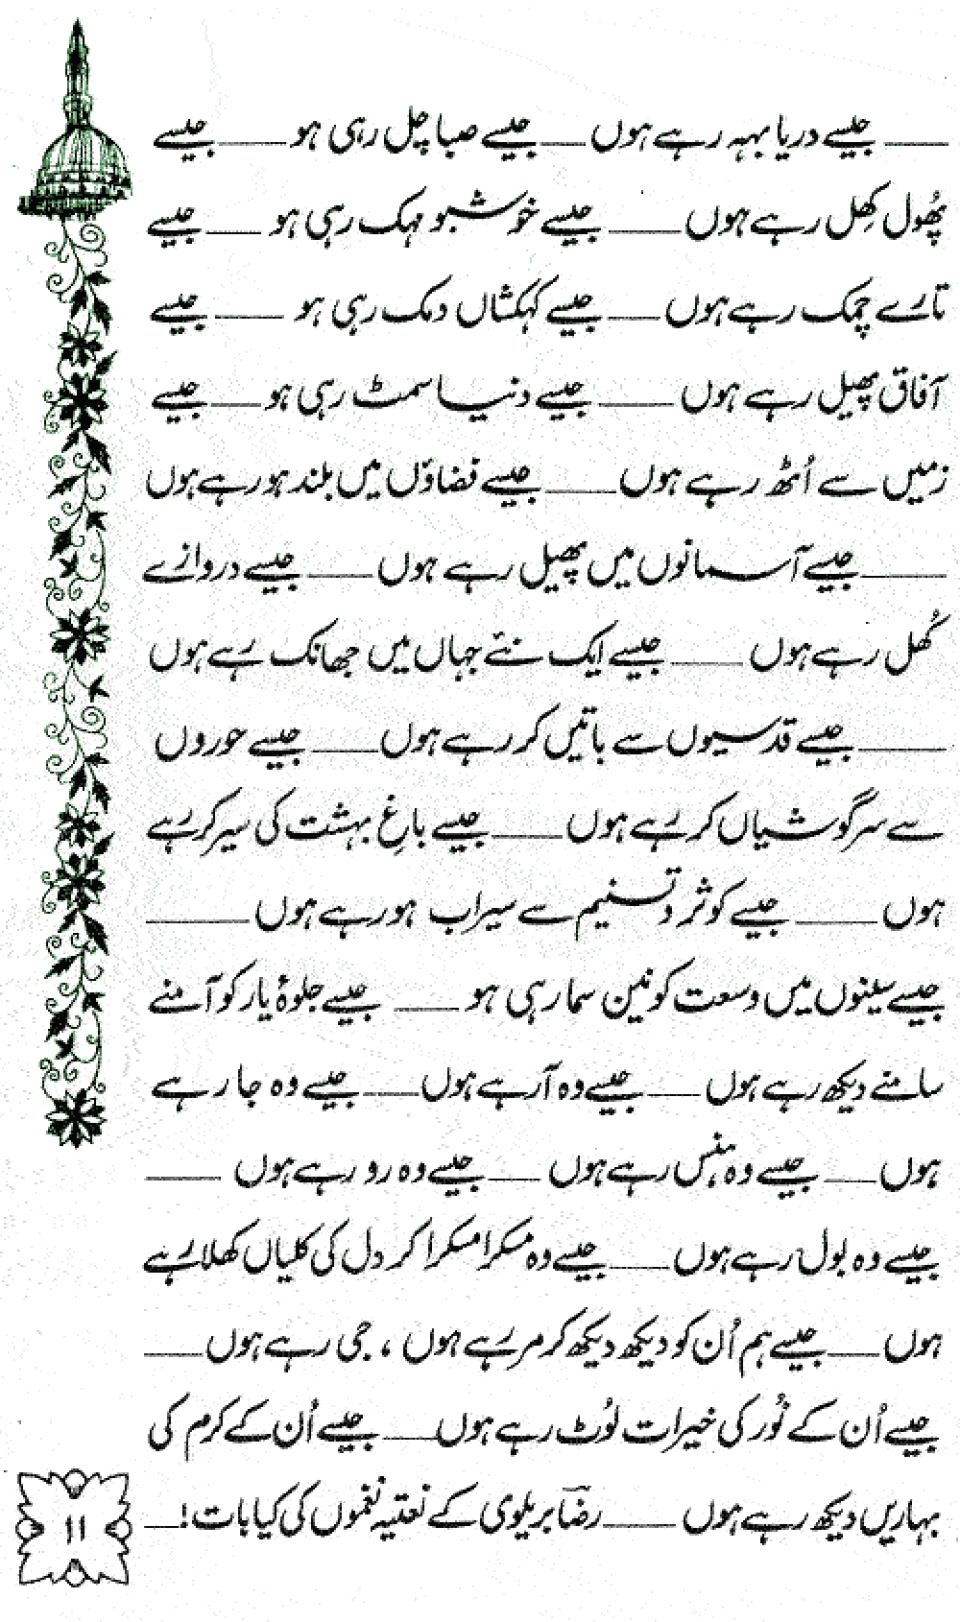 ____ جیسے دریا بہہ رہے ہوں ____ جیسے صبا چل رہی ہو ____ جیسے
پھُول کھِل رہے ہوں ____ جیسے خوشبو مہک رہی ہو ____ جیسے
تارے چمک رہے ہوں ____ جیسے کہکشاں دمک رہی ہو ____ جیسے
آفاق پھیل رہے ہوں ____ جیسے دنیا سمٹ رہی ہو ____ جیسے
زمیں سے اُٹھ رہے ہوں ____ جیسے فضاؤں میں بلند ہو رہے ہوں
____ جیسے آسمانوں میں پھیل رہے ہوں ____ جیسے دروازے
کُھل رہے ہوں ____ جیسے ایک نئے جہاں میں جھانک رہے ہوں
____ جیسے قدسیوں سے باتیں کر رہے ہوں ____ جیسے حوروں
سے سرگوشیاں کر رہے ہوں ____ جیسے باغِ بہشت کی سیر کر رہے
ہوں ____ جیسے کوثر و تسنیم سے سیراب ہو رہے ہوں ____
جیسے سینوں میں وسعت کونین سما رہی ہو ____ جیسے جلوۂ یار کو آمنے
سامنے دیکھ رہے ہوں ____ جیسے وہ آ رہے ہوں ____ جیسے وہ جا رہے
ہوں ____ جیسے وہ ہنس رہے ہوں ____ جیسے وہ رو رہے ہوں ____
جیسے وہ بول رہے ہوں ____ جیسے وہ مسکرا مسکرا کر دل کی کلیاں کھلا رہے
ہوں ____ جیسے ہم اُن کو دیکھ دیکھ کر مر رہے ہوں ، جی رہے ہوں ____
جیسے اُن کے نُور کی خیرات لُوٹ رہے ہوں ____ جیسے اُن کے کرم کی
بہاریں دیکھ رہے ہوں ____ رضاؔ بریلوی کے نعتیہ نغموں کی کیا بات! ____
۱۱